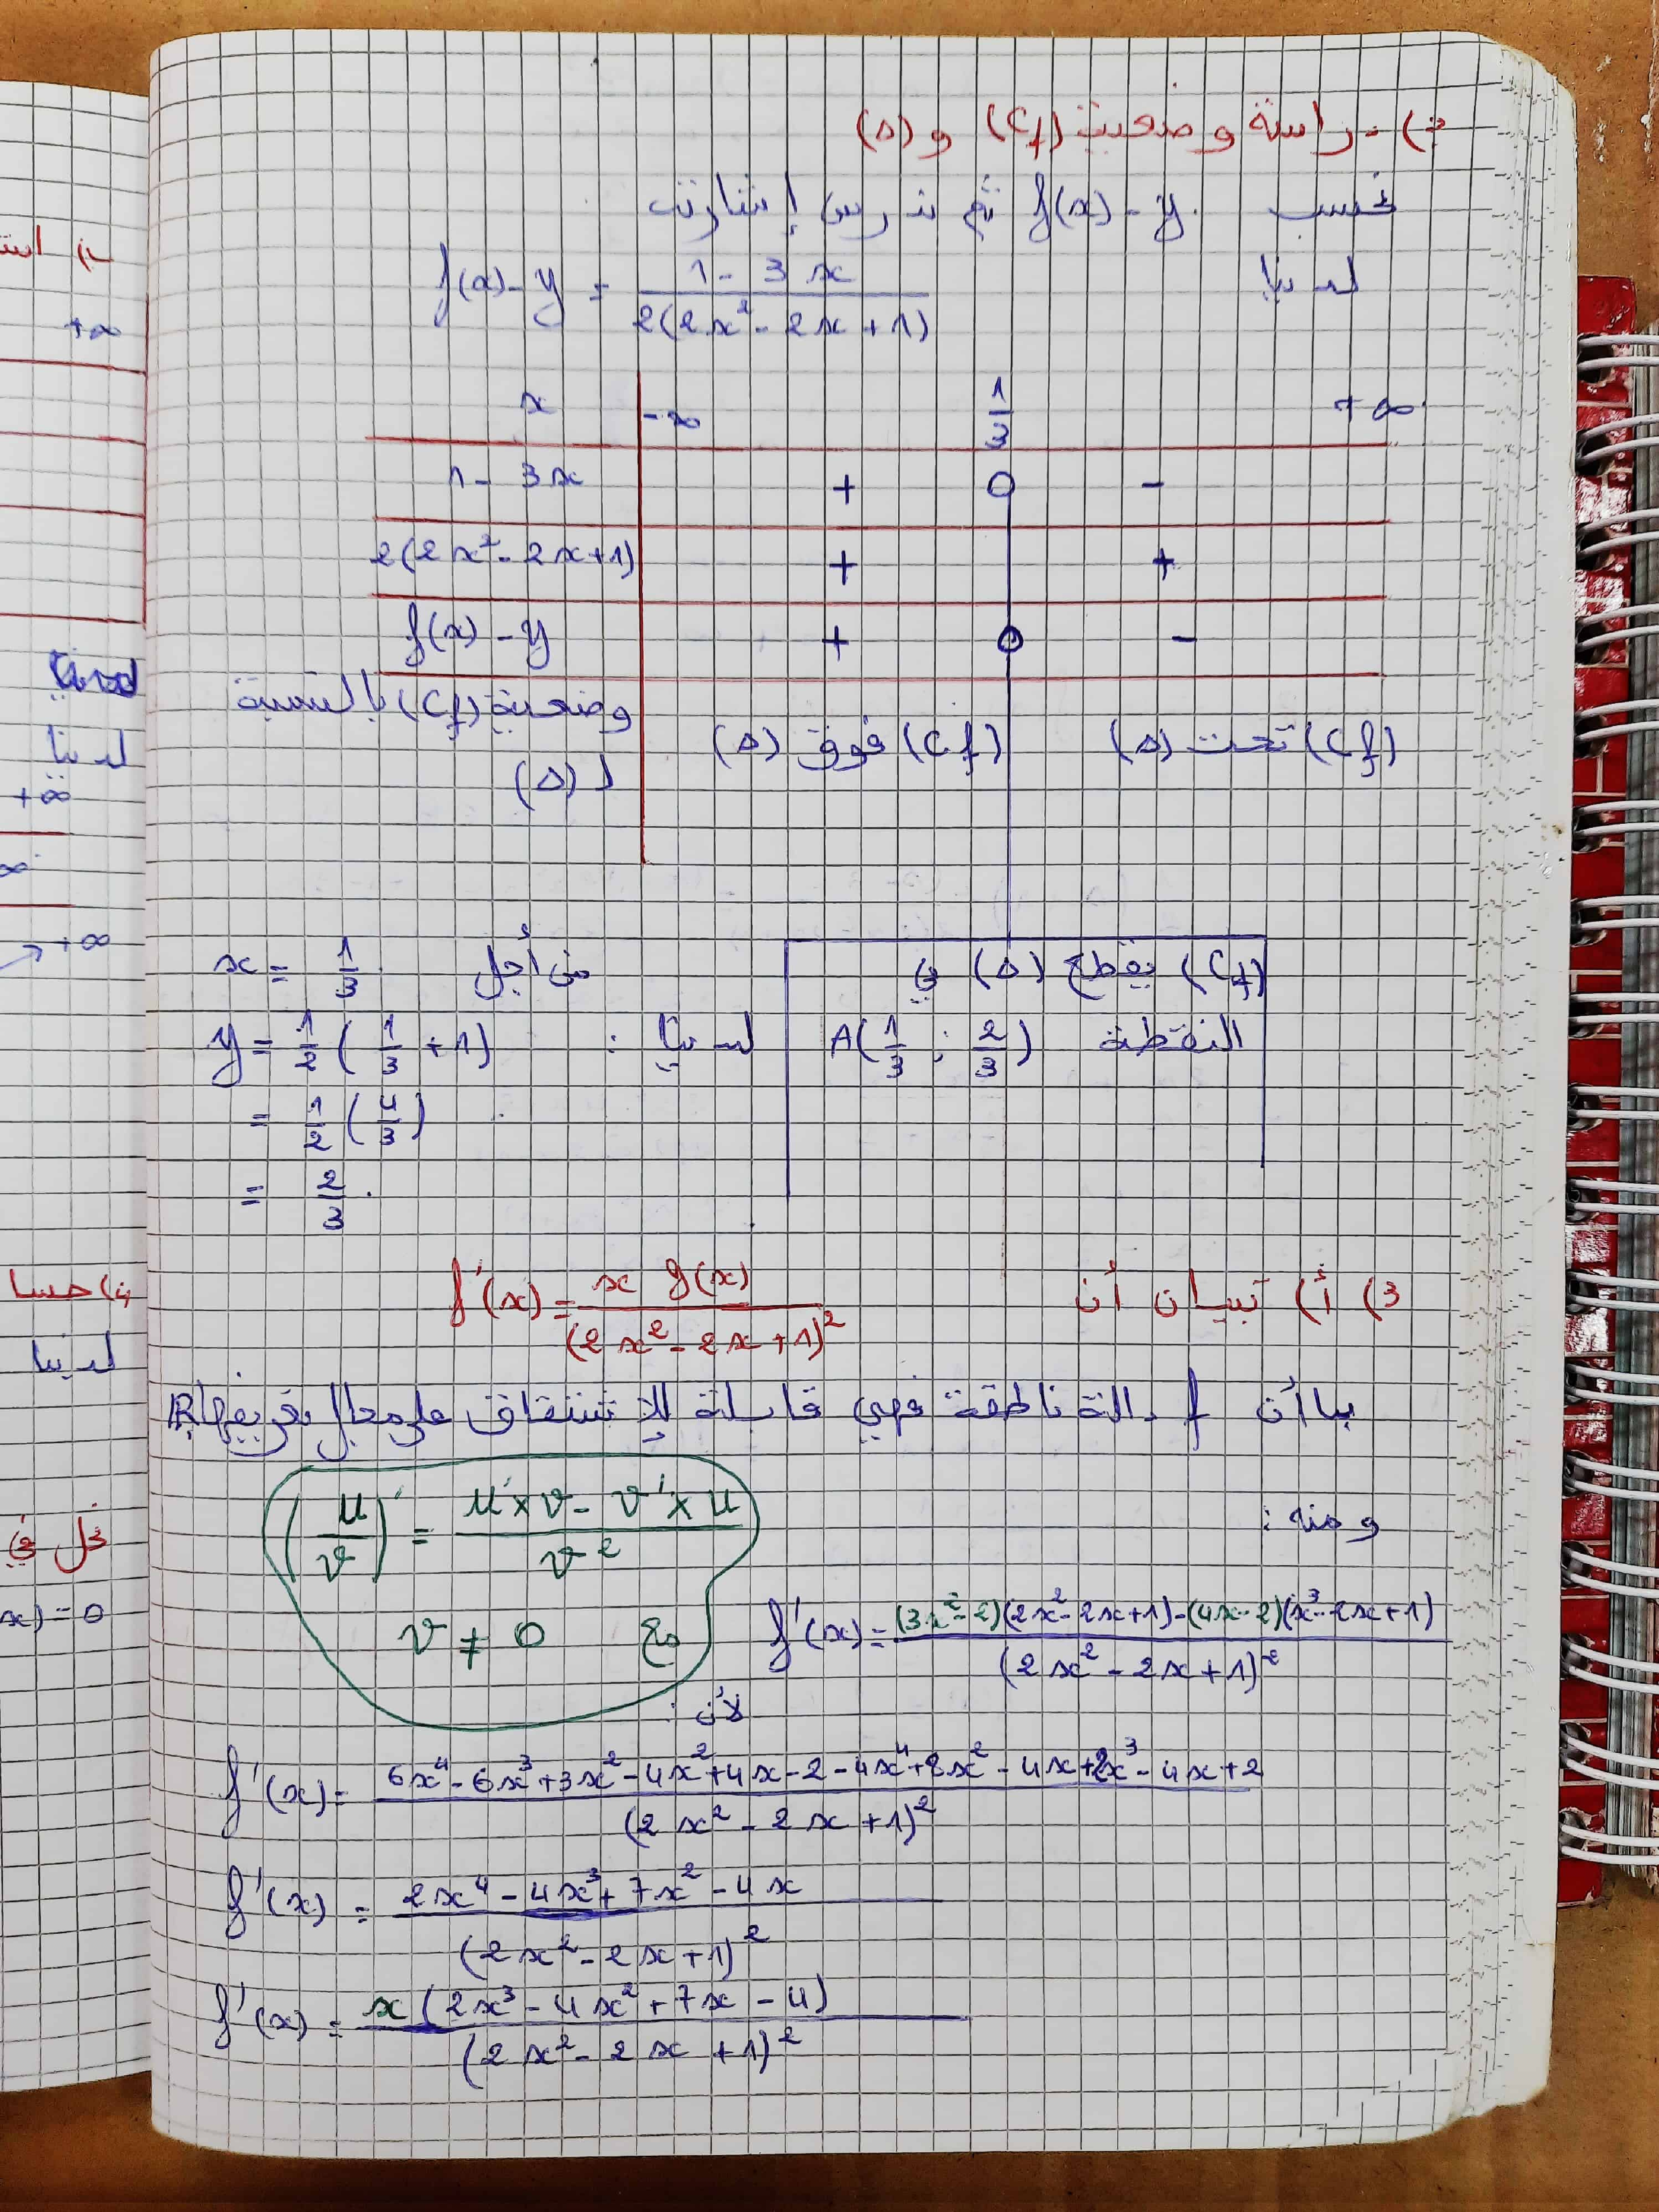 ب) دراسة وضعية (Cf) و (Δ)
نحسب f(x) - y ثم ندرس إشارته
لدينا f(x) - y = (1 - 3x) / (2(2x² - 2x + 1))
x -∞ 1/3 - +∞
1 - 3x + 0 -
2(2x² - 2x + 1) + +
f(x) - y + 0 -
وضعية (Cf) بالنسبة
لـ (Δ)
(Cf) فوق (Δ)
(Cf) تحت (Δ)
(Cf) يقطع (Δ) في
النقطة A(1/3 ; 2/3)
من أجل x = 1/3
لدينا : y = 1/2 (1/3 + 1)
= 1/2 (4/3)
= 2/3.
3) أ) تبيان أن f'(x) = x g(x) / (2x² - 2x + 1)²
بما أن f دالة ناطقة فهي قابلة للإشتقاق على مجال تعريفها ℝ
ومنه :
f'(x) = ((3x² - 2)(2x² - 2x + 1) - (4x - 2)(x³ - 2x + 1)) / (2x² - 2x + 1)²
لأن :
(u/v)' = (u' × v - v' × u) / v²
مع v ≠ 0
f'(x) = (6x⁴ - 6x³ + 3x² - 4x² + 4x - 2 - 4x⁴ + 8x² - 4x + 2x³ - 4x + 2) / (2x² - 2x + 1)²
f'(x) = (2x⁴ - 4x³ + 7x² - 4x) / (2x² - 2x + 1)²
f'(x) = x(2x³ - 4x² + 7x - 4) / (2x² - 2x + 1)²
+∞
لدينا
+∞
∞
+∞
4) حسا
لدينا
نحل في
x) = 0